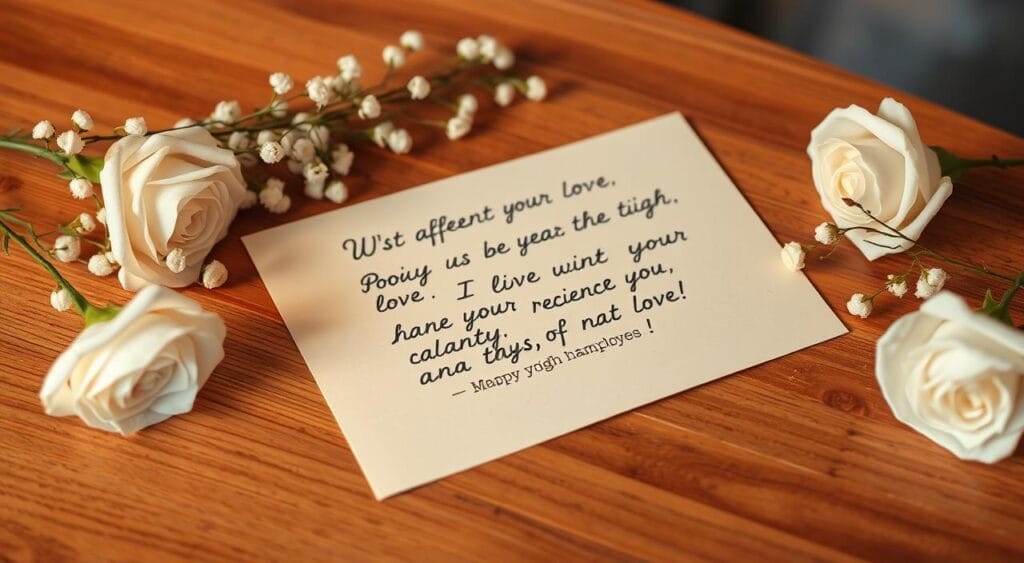 W'st affeent your love,
Pooiy us be year the tiigh,
love. I live wint your
hane your recience you,
calanty.
ana tays, of nat love!
— Mappy yogh hamployes !